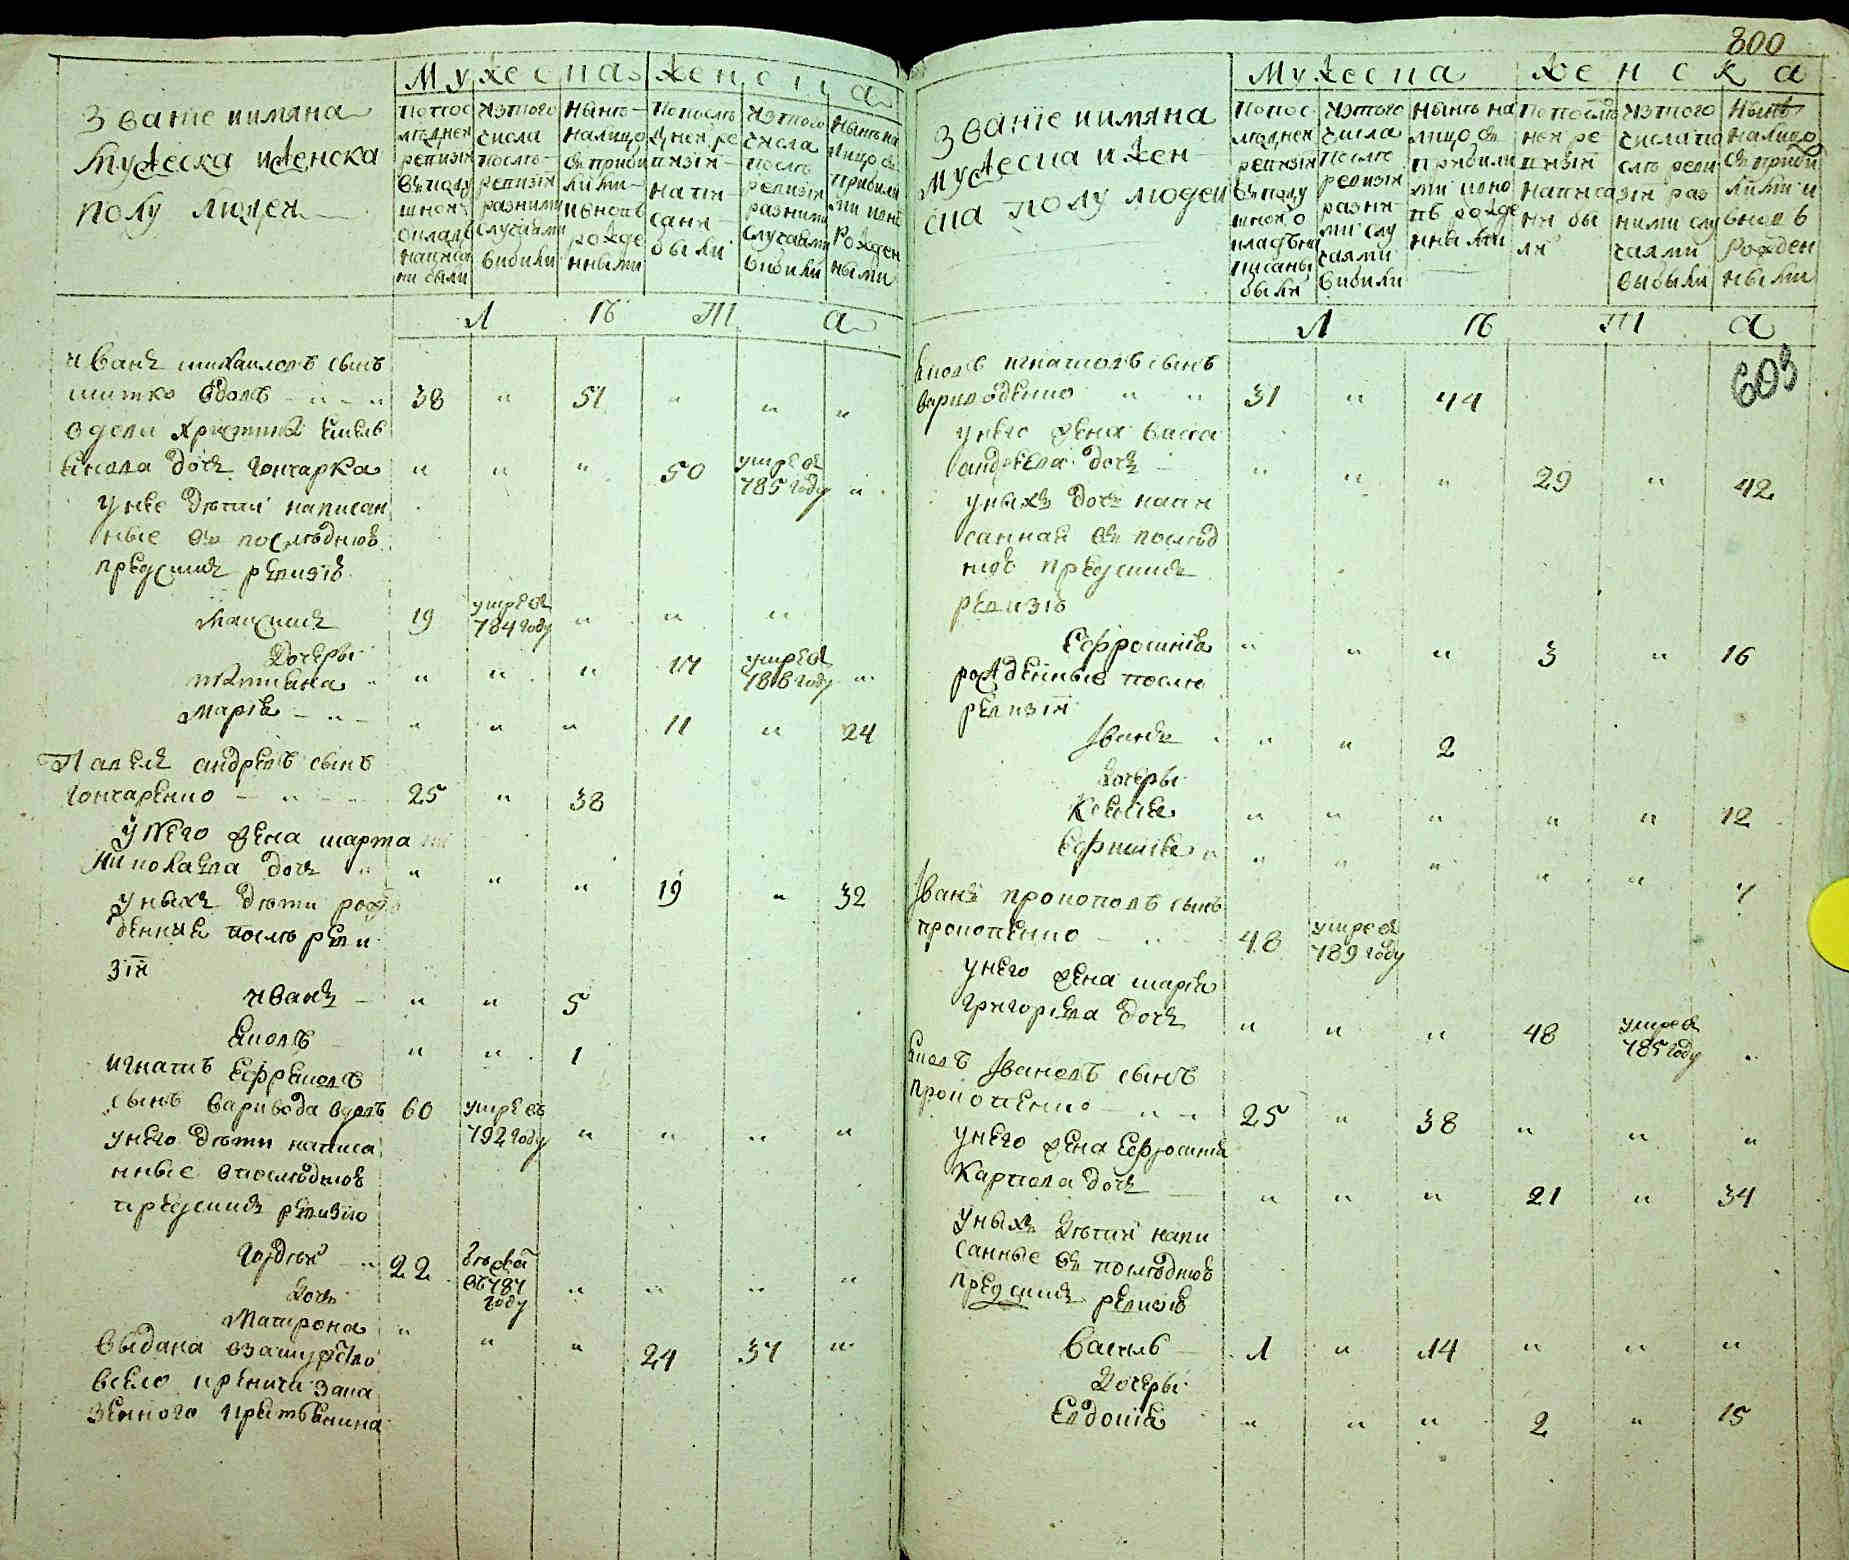 800
603
Званіе иимяна
Мужеска иженска
полу людеи
Мужеска женска
Попос
ледней
ревизіи
вподу
шной
окладъ
написа
ни были
Изтого
числа
после
ревизіи
разними
случаями
вибили
Нынѣ
налицо
съ приби
лими
ивновь
рожде
нными
Попослѣ
дней ре
визіи
напи
сани
были
Изтого
числа
послѣ
ревизіи
разними
случаями
вибили
Нынѣ на
лицо съ
прибили
ми ивно
рожден
ными
Л ѣ т а
Иванъ михаиловъ сынъ
шитко вдовъ 38 " 51 " " "
вдова христина
дочь гончарка " " " 50 умре въ
785 году "
унее дѣтии написан
ные въ последнюю
предсимъ ревизію
Максимъ 19 умре въ
784 году " " "
Дочеры
татиана " " " 17 умре въ
788 году "
Марія " " " 11 " 24
Павелъ андреевъ сынъ
гончаренко 25 " 38
у него жена марта
николаева дочь " " " 19 " 32
уныхъ дѣти рож
денніе послѣ реви
зіи
Иванъ " " 5
Яковъ " " 1
игнатъ Ефремовъ
сынъ варивода вдовъ 60 умре въ
792 году " " " "
унего дѣти написа
нные впоследнюю
предсимъ ревизію
Гордѣй 22 бѣжа
въ 787
году " " " "
Дочь
Матрона " " " 24 37 "
выдана взамужство
всело
зенного
Званіе иимяна
Мужеска и жен
ска полу людеи
Мужеска женска
Попос
ледней
ревизіи
вподу
шной о
кладъ на
писаны
были
Изтого
числа
после
ревизіи
разни
ми слу
чаями
вибили
Нынѣ на
лицо съ
прибили
ми ивно
въ рожде
нными
Попослѣд
ней ре
визіи
написа
ни бы
ли
Изтого
числа по
слѣ реви
зіи раз
ними слу
чаями
выбыли
Нынѣ
налицо
съ приби
лими и
вновь
рожден
ными
Л ѣ т а
Яковъ игнатовъ сынъ
вариводенко " " 31 " 44
унего жена васса
андреева дочь " " " 29 " 42
уныхъ дочь напи
санная въ послед
нюю предсимъ
ревизію
Ефросинія " " " 3 " 16
рожденные после
ревизіи
Іванъ " " 2
Дочеры
Ксенія " " " " " 12
Ефимія " " " " " " 7
Іванъ прокоповъ сынъ
прокопенко 48 умре въ
789 году
унего жена марія
григоріева дочь " " " 48 умре въ
785 году "
Яковъ Івановъ сынъ
прокопенко 25 " 38 " " "
унего жена Ефросинія
Карпова дочь " " " 21 " 34
уныхъ дѣтии напи
санные въ последнюю
предсимъ ревизію
Василь 1 " 14 " " "
Дочеры
Евдокія " " " 2 " 15